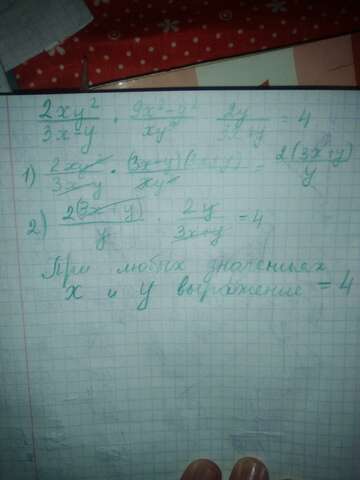 2xy²/3x-y · 9x²-y²/xy² · 2y/3x+y = 4
1) 2xy²/3x-y · (3x-y)(3x+y)/xy² = 2(3x+y)/y
2) 2(3x+y)/y · 2y/3x+y = 4
При любых значениях
x и y выражение = 4